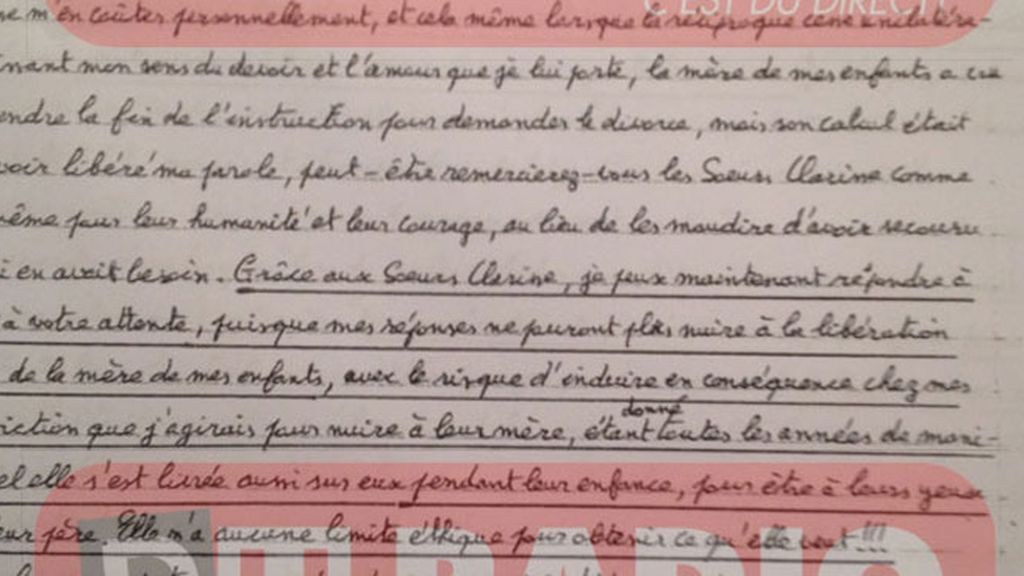 C'EST DU DIRECT!
m'en coûter personnellement, et cela même lorsque la réciproque
mon sens du devoir et l'amour que je lui porte, la mère de mes enfants a cru
la fin de l'instruction pour demander le divorce, mais son calcul était
libéré ma parole, peut-être remercierez-vous les Soeurs Clarine comme
pour leur humanité et leur courage, au lieu de les maudire d'avoir secouru
en avait besoin. Grâce aux Soeurs Clarine, je peux maintenant répondre à
à votre attente, puisque mes réponses ne pourront plus nuire à la libération
de la mère de mes enfants, avec le risque d'induire en conséquence chez mes
donné
que j'agirais pour nuire à leur mère, étant toutes les années de mani-
elle s'est livrée aussi sur eux pendant leur enfance, pour être à leurs yeux
père. Elle n'a aucune limite éthique pour obtenir ce qu'elle veut!!!
RADIO